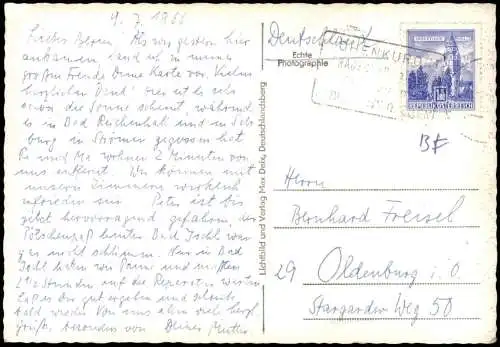 9. 7. 1966
Lieber Bernd! Als wir gestern hier
ankamen, fand ich zu meiner
großen Freude Deine Karte vor. Vielen
herzlichen Dank! Hier ist es sehr
schön die Sonne scheint, während
es in Bad Reichenhall und in Salz-
burg in Strömen gegossen hat
Pe und Ma wohnen 2 Minuten von
uns entfernt. Wir können mit
unseren Zimmern wirklich
zufrieden sein. Peter ist bis
jetzt hervorragend gefahren, der
Pötschenpaß hinter Bad Ischl war
gar nicht schlimm. Nur in Bad
Ischl hatten wir und mußten
2 1/2 Stunden auf die Reparatur warten
Laß es Dir gut ergehen und schreib
bald wieder. Von uns allen viele herzl.
Grüße, besonders von Deiner Mutter
Echte
Photographie
Lichtbild und Verlag Max Deix, Deutschlandsberg
Deutschland
HÖHENKURORT
REPUBLIK ÖSTERREICH
BF
Herrn
Bernhard Freisel
29 Oldenburg i. O.
Stargarder Weg 50